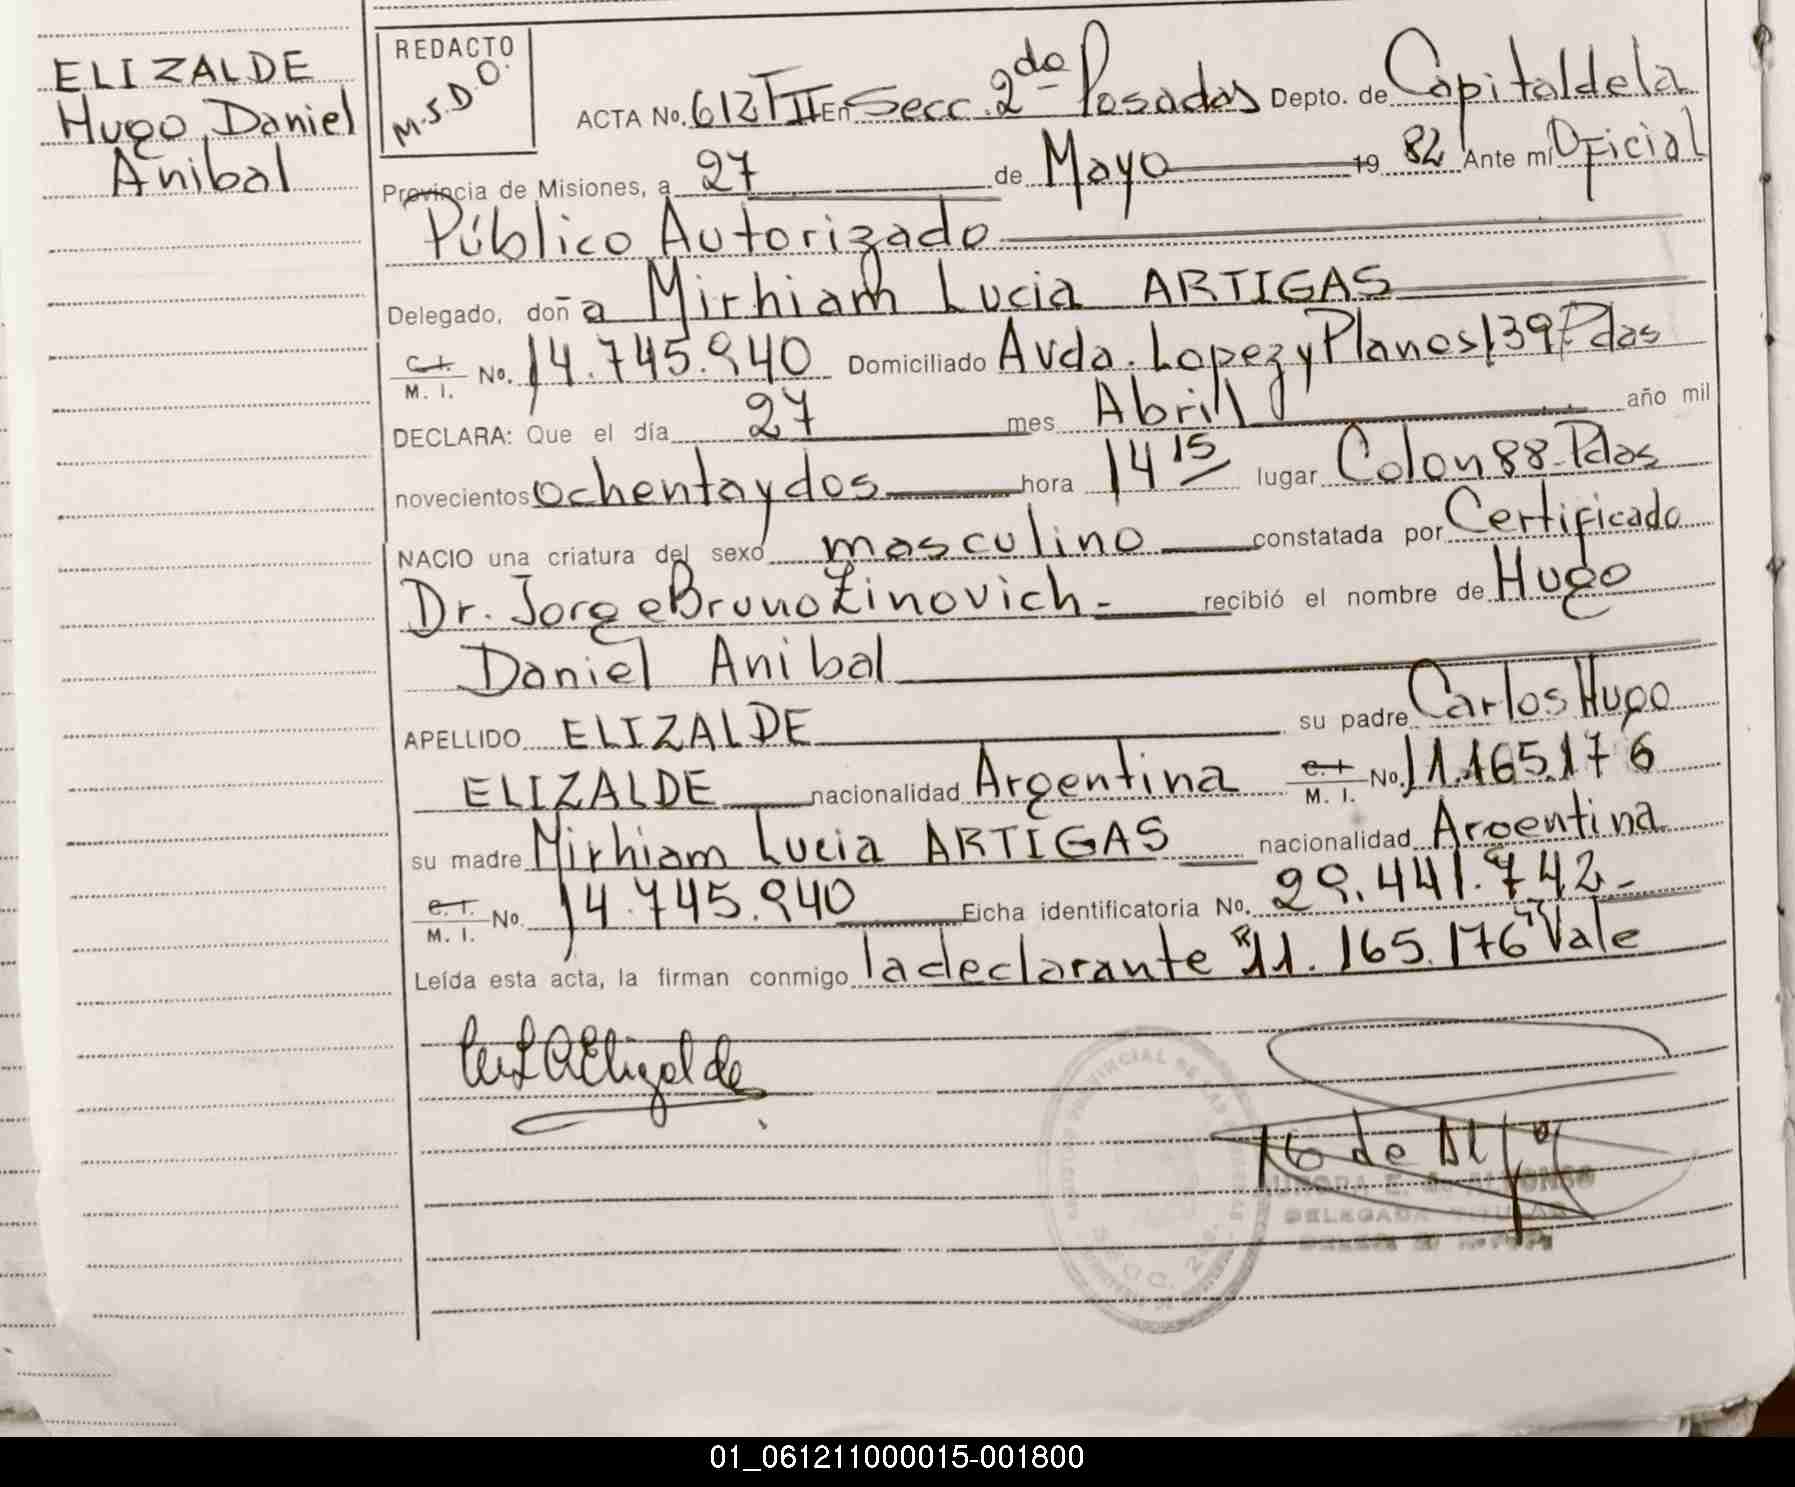 ELIZALDE
Hugo Daniel
Anibal
REDACTO
M.S.D.O.
ACTA No. 612 TII En Secc. 2da Posadas Depto. de Capital de la
Provincia de Misiones, a 27 de Mayo 19 82 Ante mi Oficial
Público Autorizado
Delegado, doña Mirhiam Lucia ARTIGAS
C.I. M. I. No. 14.745.940 Domiciliado Avda. Lopez y Planes 139 Pdas
DECLARA: Que el día 27 mes Abril año mil
novecientos ochenta y dos hora 14 15 lugar Colon 88-Pdas
NACIO una criatura del sexo masculino constatada por Certificado
Dr. Jorge Bruno Zinovich.- recibió el nombre de Hugo
Daniel Anibal
APELLIDO ELIZALDE su padre Carlos Hugo
ELIZALDE nacionalidad Argentina C.I. M. I. No. 11.165.176
su madre Mirhiam Lucia ARTIGAS nacionalidad Argentina
C.I. M. I. No. 14.745.940 Ficha identificatoria No. 29.441.742-
Leída esta acta, la firman conmigo la declarante "11.165.176" Vale
DELEGADA TITULAR
SECC. 2da.
01_061211000015-001800